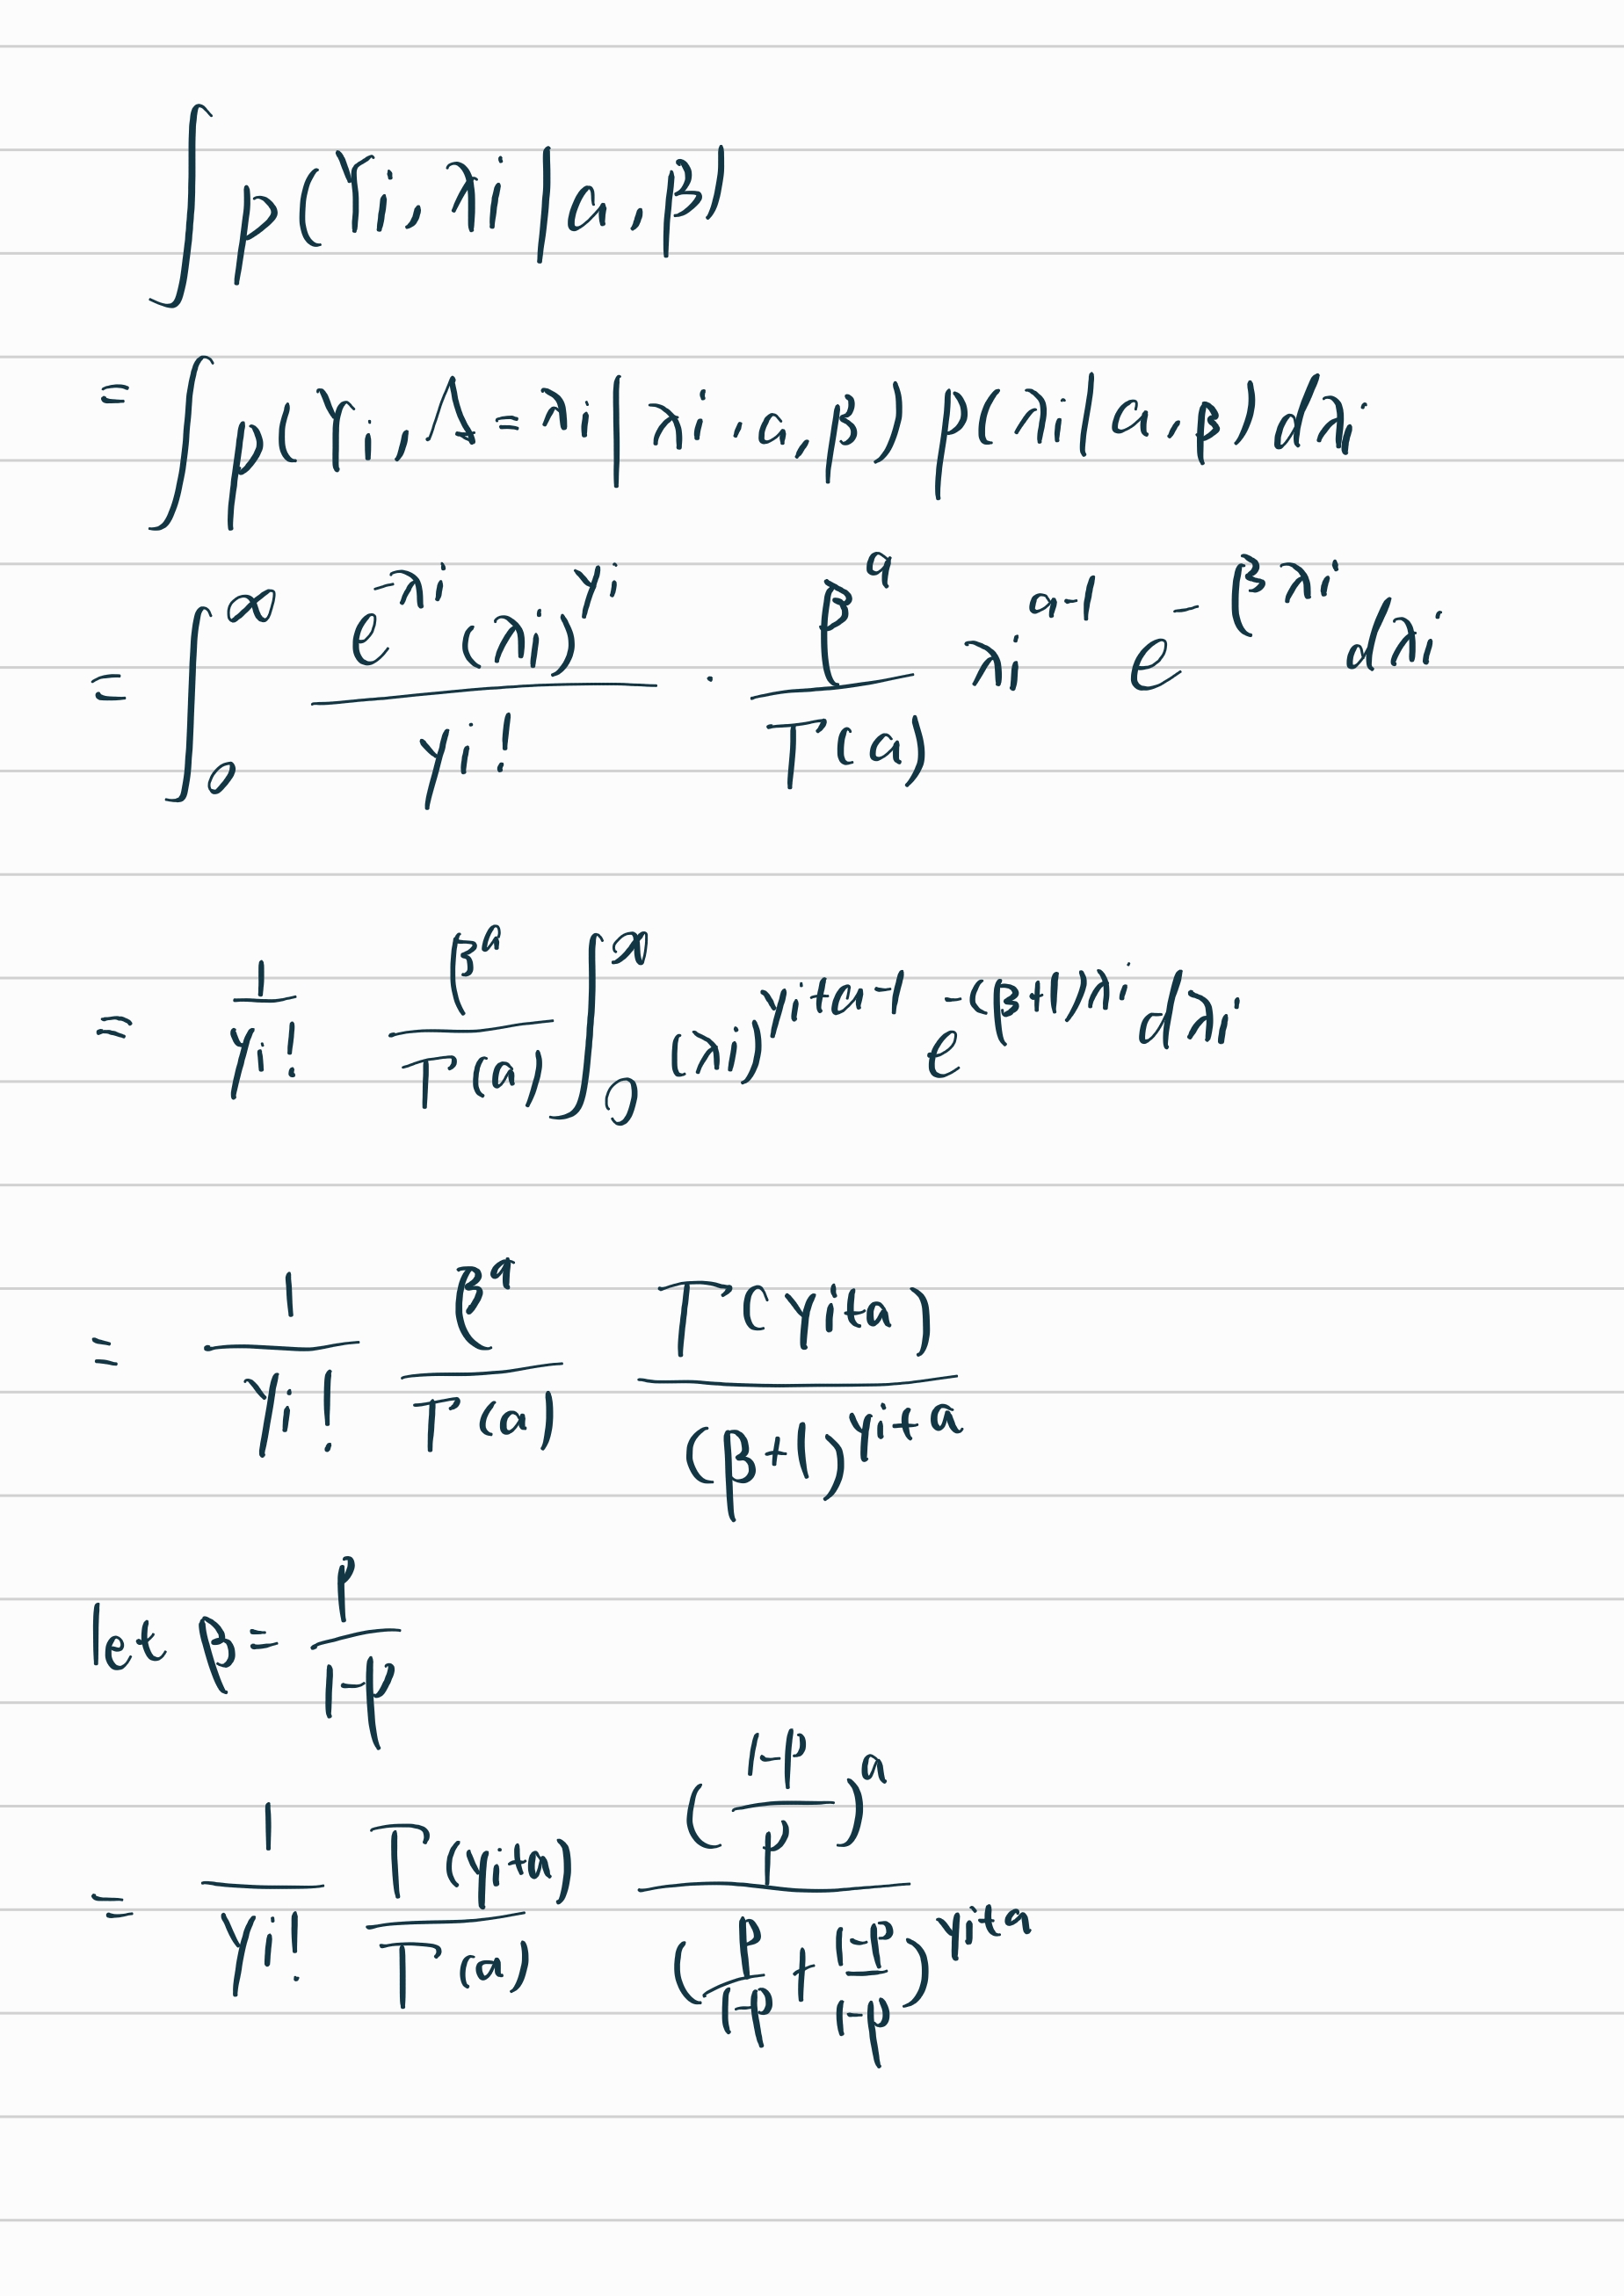 ∫ p(Yi, λi | a, β)
= ∫ p(Yi, Λ = λi | λi, a, β) p(λi | a, β) dλi
= ∫_0^∞ \frac{e^{-λi} (λi)^{yi}}{yi!} · \frac{β^a}{Γ(a)} λi^{a-1} e^{-βλi} dλi
= \frac{1}{yi!} \frac{β^a}{Γ(a)} ∫_0^∞ (λi)^{yi+a-1} e^{-(β+1)λi} dλi
= \frac{1}{yi!} \frac{β^a}{Γ(a)} \frac{Γ(yi+a)}{(β+1)^{yi+a}}
let β = \frac{p}{1-p}
= \frac{1}{yi!} \frac{Γ(yi+a)}{Γ(a)} \frac{(\frac{1-p}{p})^a}{(\frac{p}{1-p} + \frac{1-p}{1-p})^{yi+a}}